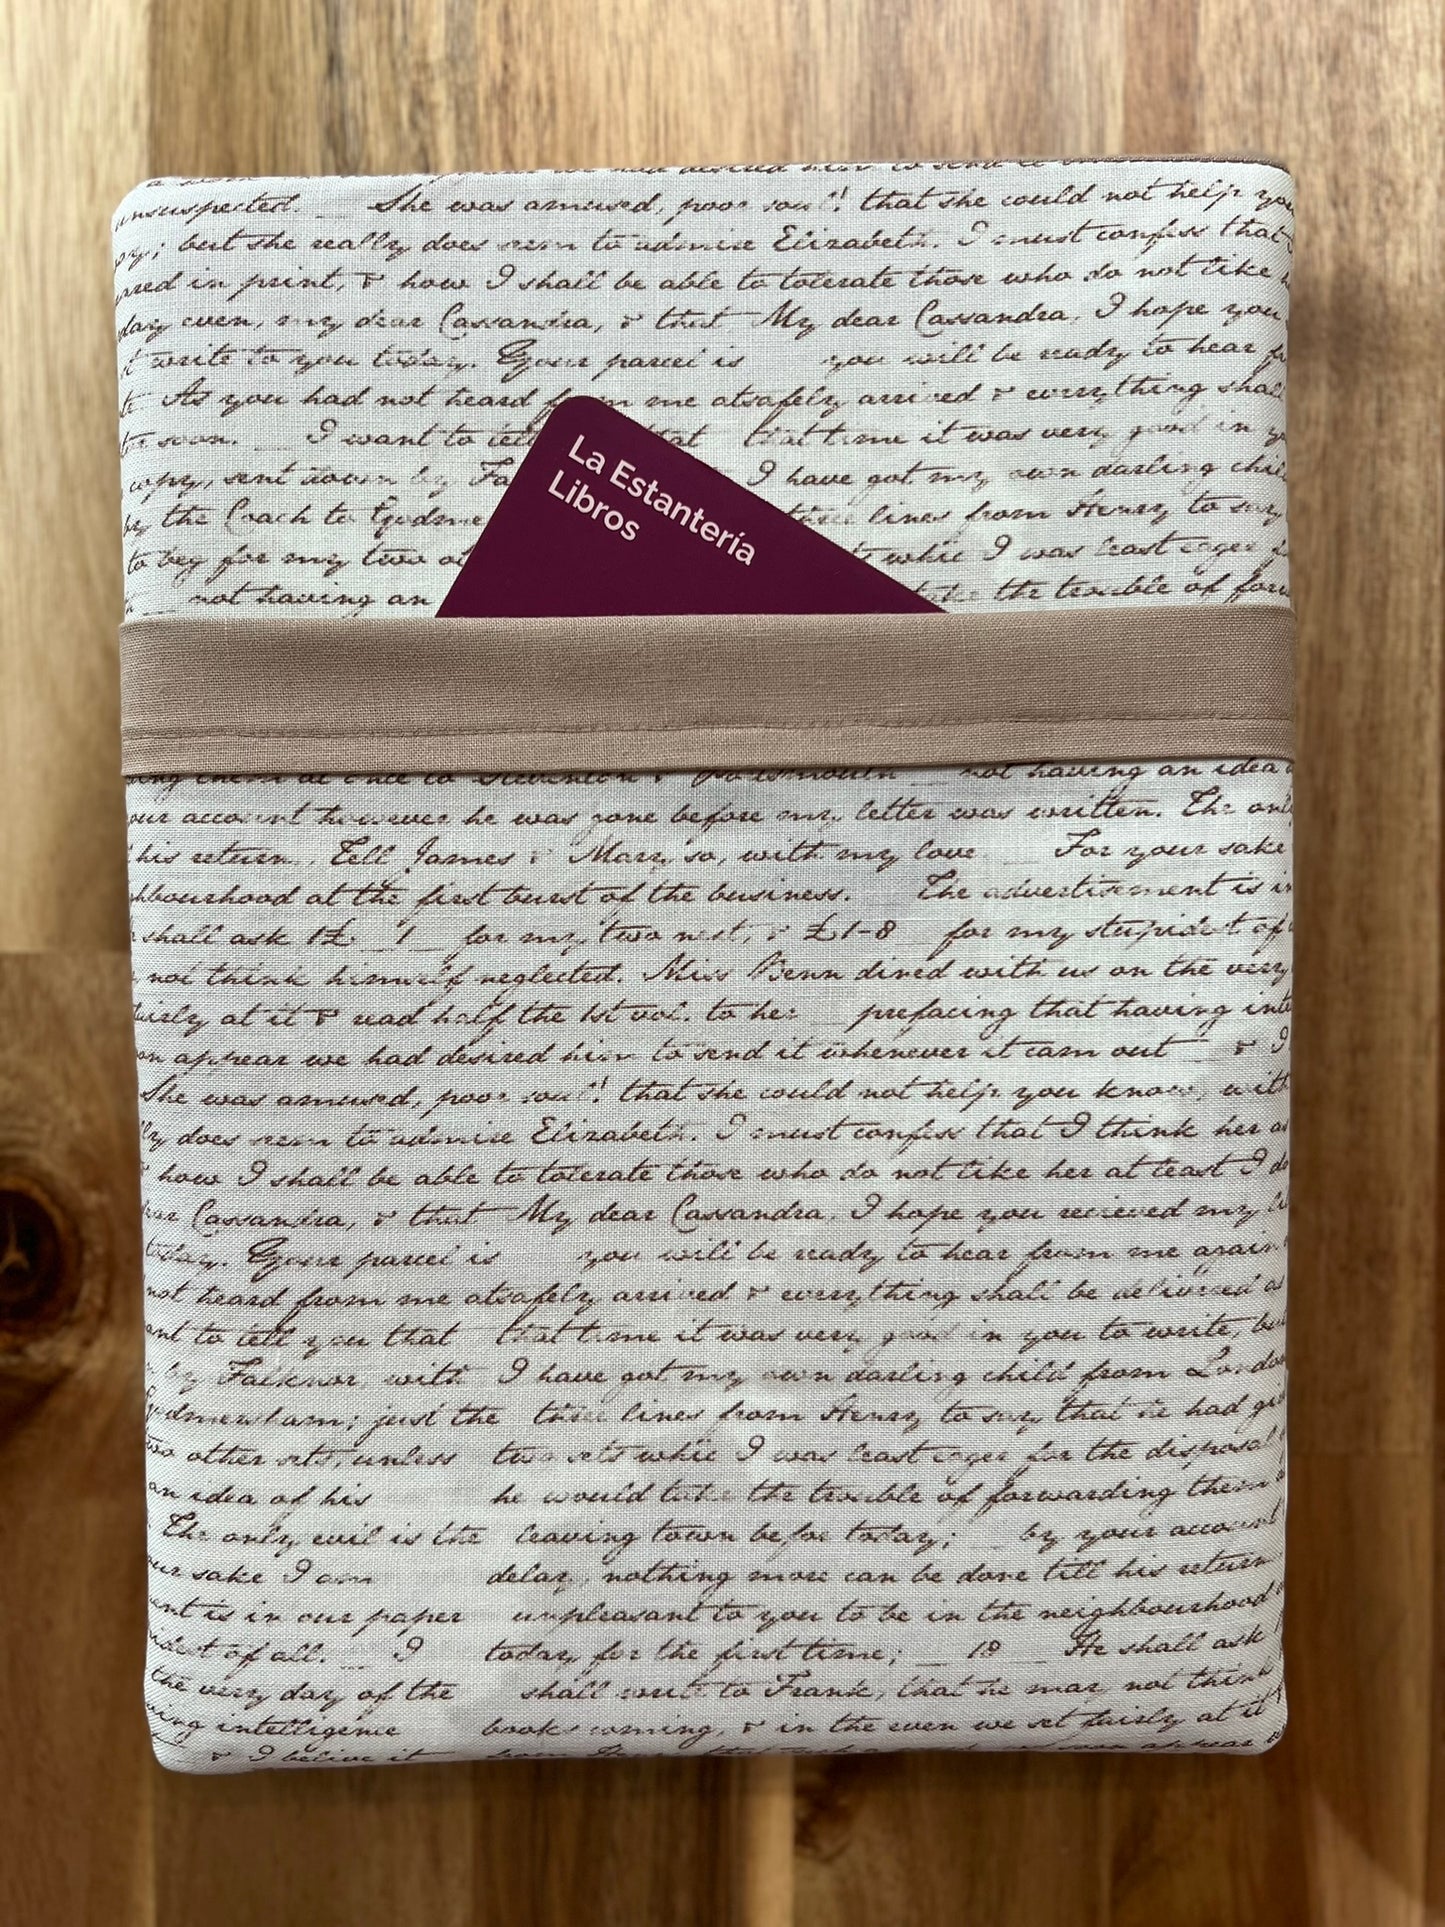 unsuspected. _ She was amused, poor soul! that she could not help you
but she really does seem to admire Elizabeth. I must confess that
in print, & how I shall be able to tolerate those who do not like
even, my dear Cassandra, & that My dear Cassandra, I hope you
write to you today. Your parcel is you will be ready to hear
As you had not heard from me atsafely arrived & everything shall
soon. _ I want to tell that that time it was very good in
copy, sent down by I have got my own darling
by the Coach to three lines from Henry to say
to beg for my two while I was least eager
_ not having an the trouble of
La Estantería
Libros
not having an idea
account however he was gone before my letter was written. The
his return. Tell James & Mary so, with my love _ For your sake
at the first burst of the business. The advertisement is
shall ask 1£ _ 1 _ for my two next, & £1-8 _ for my stupidest of
not think himself neglected. Miss Benn dined with us on the very
at it & read half the 1st vol. to her _ prefacing that having
appear we had desired him to send it whenever it cam out _ & I
She was amused, poor soul! that she could not help you know, with
does seem to admire Elizabeth. I must confess that I think her as
how I shall be able to tolerate those who do not like her at least I do
Cassandra, & that My dear Cassandra, I hope you recieved my
today. Your parcel is you will be ready to hear from me again
not heard from me atsafely arrived & everything shall be delivered as
to tell you that that time it was very good in you to write, but
by Falknor, with I have got my own darling child from London
just the three lines from Henry to say that he had
two other sets, unless two sets while I was least eager for the disposal
an idea of his he would take the trouble of forwarding them
The only evil is the leaving town before today; _ by your account
sake I am delay, nothing more can be done till his return
is in our paper unpleasant to you to be in the neighbourhood
of all. _ I today for the first time; _ 18 _ He shall ask
the very day of the shall write to Frank, that he may not think
intelligence books coming, & in the even we set fairly at it
_ & I believe it appear